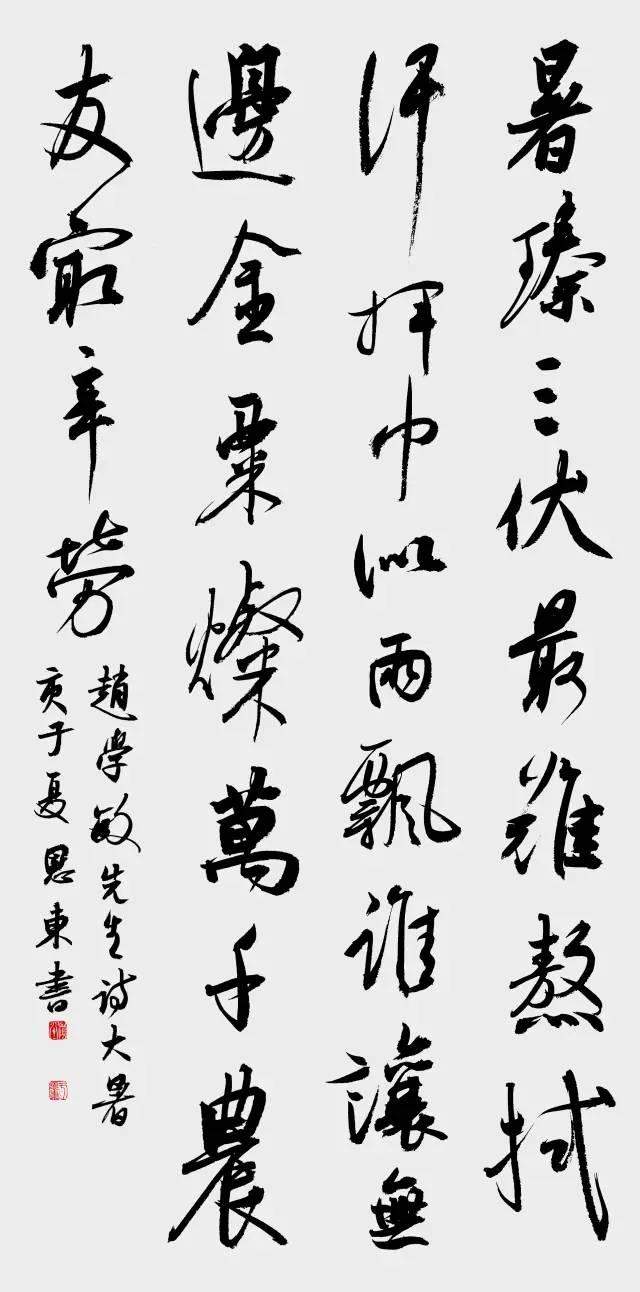 暑臻三伏最難熬拭
汗揮巾似雨飄誰讓無
邊金粟燦萬千農
友最辛勞
趙學敏先生詩大暑
庚子夏恩東書